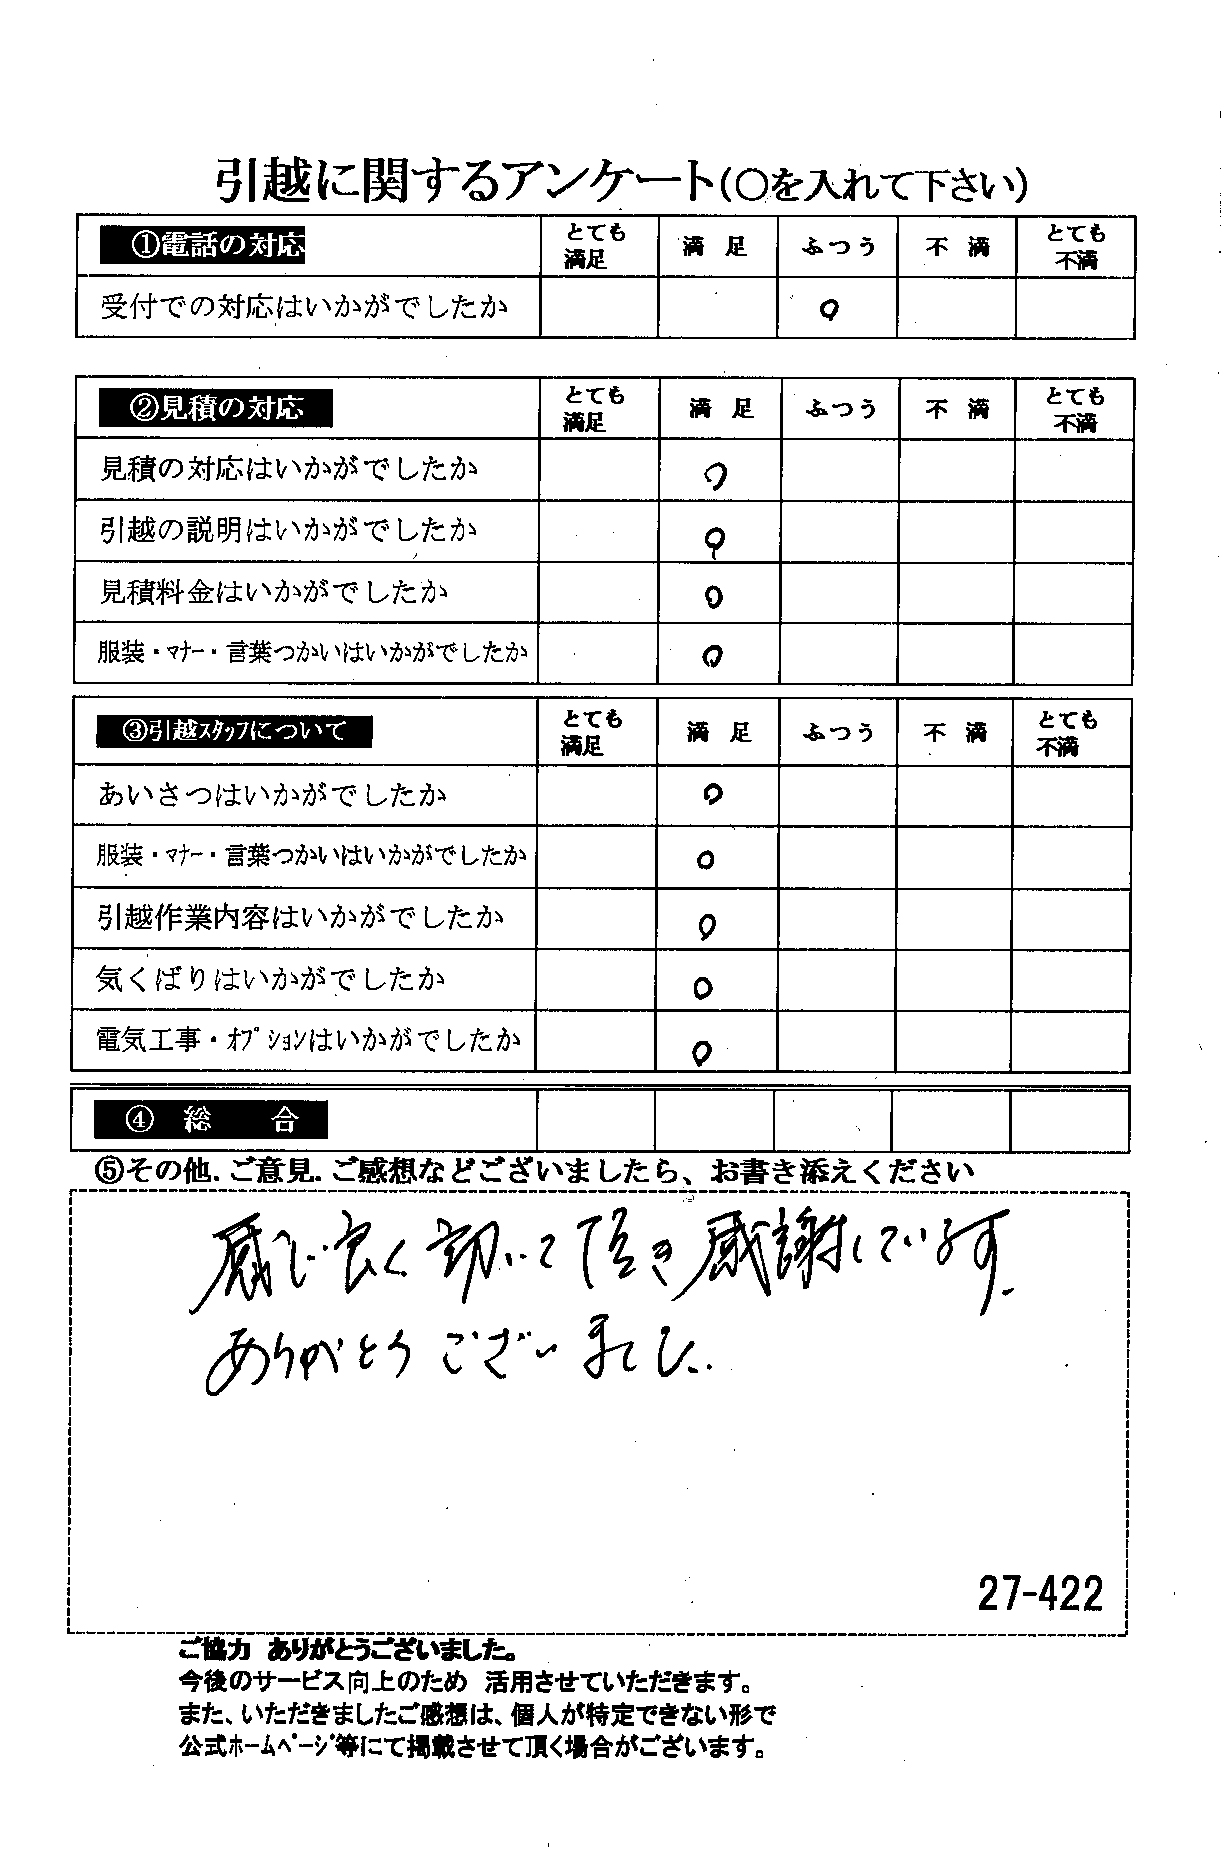 引越に関するアンケート(○を入れて下さい)
①電話の対応 とても満足 満足 ふつう 不満 とても不満
受付での対応はいかがでしたか ○
②見積の対応 とても満足 満足 ふつう 不満 とても不満
見積の対応はいかがでしたか ○
引越の説明はいかがでしたか ○
見積料金はいかがでしたか ○
服装・マナー・言葉つかいはいかがでしたか ○
③引越スタッフについて とても満足 満足 ふつう 不満 とても不満
あいさつはいかがでしたか ○
服装・マナー・言葉つかいはいかがでしたか ○
引越作業内容はいかがでしたか ○
気くばりはいかがでしたか ○
電気工事・オプションはいかがでしたか ○
④総合
⑤その他.ご意見.ご感想などございましたら、お書き添えください
感じ良く動いて頂き感謝しています.
ありがとうございました.
27-422
ご協力 ありがとうございました。
今後のサービス向上のため 活用させていただきます。
また、いただきましたご感想は、個人が特定できない形で
公式ホームページ等にて掲載させて頂く場合がございます。